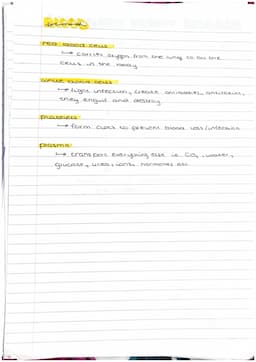 BLOOD
red blood cells
→ carries oxygen from the lung to all the
cells in the body
white blood cells
→ fights infection, create antibodies, antitoxins,
they engulf and destroy
platelets
→ form clots to prevent blood loss/infection
plasma
→ transport everything else i.e. CO₂, water,
glucose, urea, ions, hormones etc